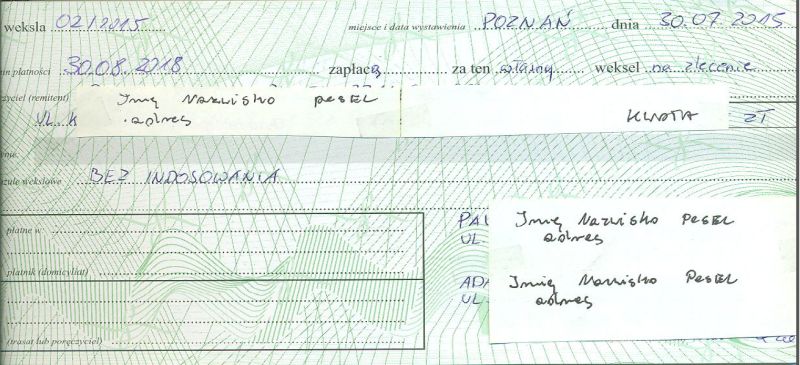 weksla 02/2015 miejsce i data wystawienia POZNAŃ dnia 30.07.2015
płatności 30.08.2018 zapłacą za ten własny weksel na zlecenie
(remitent) Imię Nazwisko PESEL
UL. K adres KWOTA ZŁ
BEZ INDOSOWANIA
płatne w
PA
Imię Nazwisko PESEL
UL. adres
płatnik (domicyliat)
ADA
Imię Nazwisko PESEL
UL. adres
(trasat lub poręczyciel)